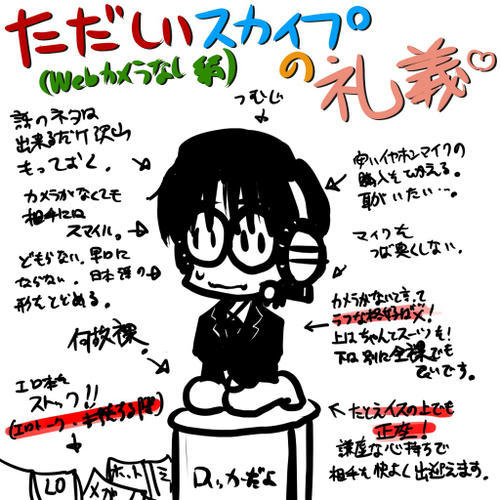 ただしいスカイプ
(Webカメラなし編)
の礼義♡
つむじ
話のネタは
出来るだけ沢山
もっておく。
カメラがなくても
相手には
スマイル。
どもらない、早口に
ならない。日本語の
形をとどめる。
何故裸。
エロ本を
ストック!!
(エロトーク
LO
ホット
イヤホンマイクの
購入をひかえる。
耳がいたい…。
マイクを
つば臭くしない。
カメラがないと言って
ラフな格好はダメ!
上はちゃんとスーツを!
下は別に全裸でも
でいです。
たとえイスの上でも
正座!
謙虚な心持ちで
相手を快よく出迎えます。